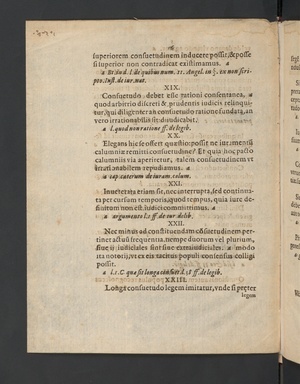 superiorem consuetudinem inducere possit, & posse
si superior non contradicat existimamus. a
a Bl. &
XIX.
Consuetudo debet esse rationi consentanea, a
quod arbitrio discreti & prudentis iudicis relinqui-
tur, qui diligenter ea consuetudo ratione fundata, an
vero irrationabilis sit diiudicabit.
a l. quod non ratione ff. de legib.
XX.
Elegans hic se offert quæstio: possit ne iuramenti
calumniæ remitti consuetudine? Et quia hoc pacto
calumniis via aperietur, talem consuetudinem vt
irrationabilem repudiamus. a
a cap. cæterum de iuram. calum.
XXI.
Inueterata etiam sit, nec interrupta, sed continua-
ta per cursum temporis, quod tempus, quia iure de-
finitum non est iudici committimus. a
a argumento l. 1. ff. de iur. delib.
XXII.
Nec minus ad constituendam consuetudinem per-
tinet actuũ frequentia, nempe duorum vel plurium,
siue ij iudiciales sint siue extraiudiciales: a modò
ita notorij, vt ex eis tacitus populi consensus colligi
possit.
a l. 1. C quæ sit longa consuet. l. 35 ff. de legib.
XXIII.
Longa consuetudo legem imitatur, vnde si præter
legem